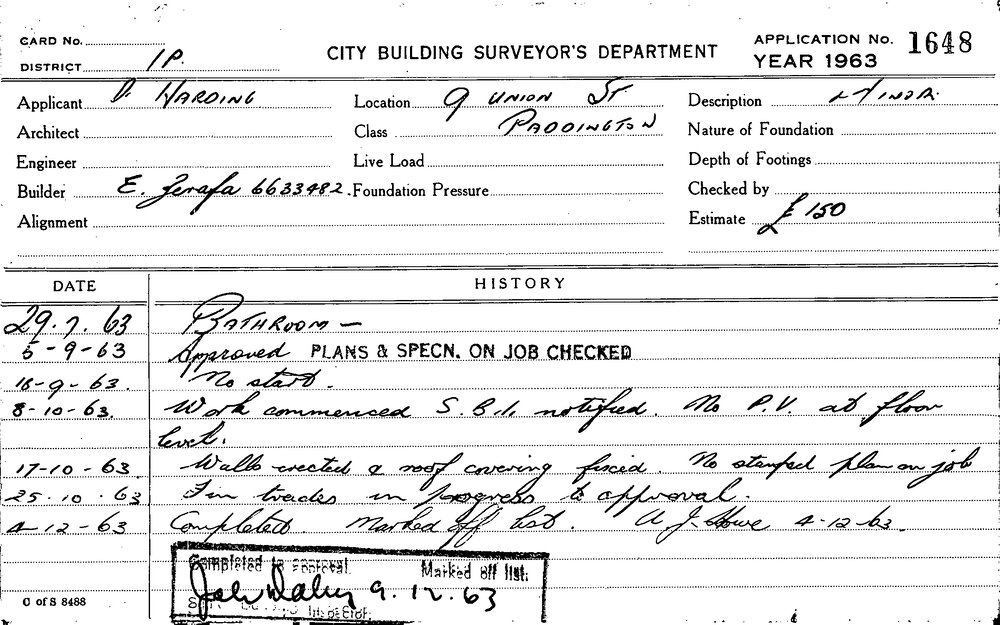 CARD No.
DISTRICT 1P.
CITY BUILDING SURVEYOR'S DEPARTMENT
APPLICATION No. 1648
YEAR 1963
Applicant D. HARDING
Location 9 UNION ST
Description MINOR
Architect
Class PADDINGTON
Nature of Foundation
Engineer
Live Load
Depth of Footings
Builder E. Zerafa 6633482.
Foundation Pressure
Checked by
Alignment
Estimate £150
DATE HISTORY
29.7.63 BATHROOM —
5-9-63 Approved PLANS & SPECN. ON JOB CHECKED
18-9-63. No start.
8-10-63. Work commenced S.B.I. notified. No P.V. at floor
level.
17-10-63 Walls erected & roof covering fixed. No stamped plan on job
25.10.63 Fin trades in progress to approval.
4-12-63 Completed. Marked off list. A.J. Howe 4-12-63.
Completed to approval. Marked off list.
9.12.63
INSPECTOR.
C of S 8488